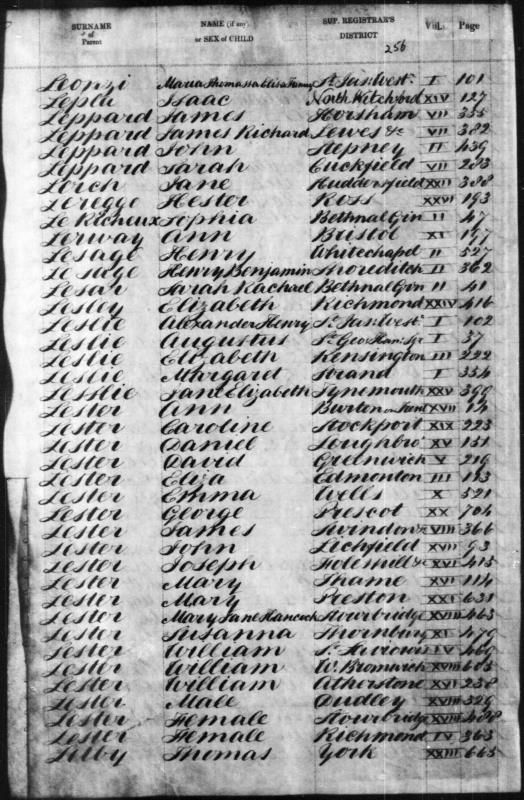 SURNAME of Parent NAME (if any) or SEX of CHILD SUP. REGISTRAR'S DISTRICT Vol. Page
256
Leonzi Maria Thomassa Eliza Fanny St Jas. Westr. I 101
Lepla Isaac North Witchford XIV 127
Leppard James Horsham VII 355
Leppard James Richard Lewes &c VII 382
Leppard John Stepney II 439
Leppard Sarah Cuckfield VII 283
Lerch Jane Huddersfield XXII 388
Leregge Hester Ross XXVI 193
Le Richeux Sophia Bethnal Grn II 47
Lerway Ann Bristol XI 197
Lesage Henry Whitechapel II 527
Le sage Henry Benjamin Shoreditch II 362
Lesar Sarah Rachael Bethnal Grn II 41
Lesley Elizabeth Richmond XXIV 416
Leslie Alexander Henry St Jas. Westr. I 102
Leslie Augustus St Geo. Han. Sqr I 37
Leslie Elizabeth Kensington III 222
Leslie Margaret Strand I 354
Lesslie Jane Elizabeth Tynemouth XXV 399
Lester Ann Burton on Trent XVII 14
Lester Caroline Stockport XIX 223
Lester Daniel Loughbro' XV 151
Lester David Greenwich V 219
Lester Eliza Edmonton III 113
Lester Emma Wells X 521
Lester George Prescot XX 704
Lester James Swindon &c VIII 366
Lester John Lichfield XVII 93
Lester Joseph Foleshill &c XVI 415
Lester Mary Thame XVI 114
Lester Mary Preston XXI 631
Lester Mary Jane Hancock Stourbridge XVIII 463
Lester Susanna Thornbury XI 479
Lester William St Saviours IV 469
Lester William W. Bromwich XVIII 605
Lester William Atherstone XVI 238
Lester Male Dudley XVIII 329
Lester Female Stourbridge XVIII 488
Lester Female Richmond IV 363
Thomas York XXIII 665